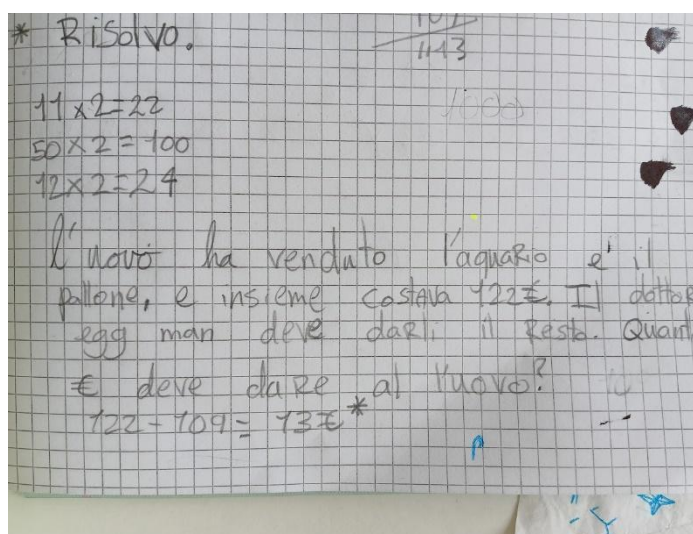 * Risolvo.
1113
1000
11 x 2 = 22
50 x 2 = 100
12 x 2 = 24
l'uovo ha venduto l'aquario e' il
pallone, e insieme costava 122€. Il dottor
egg man deve darli il resto. Quant
€ deve dare al l'uovo?
122 - 109 = 13€ *